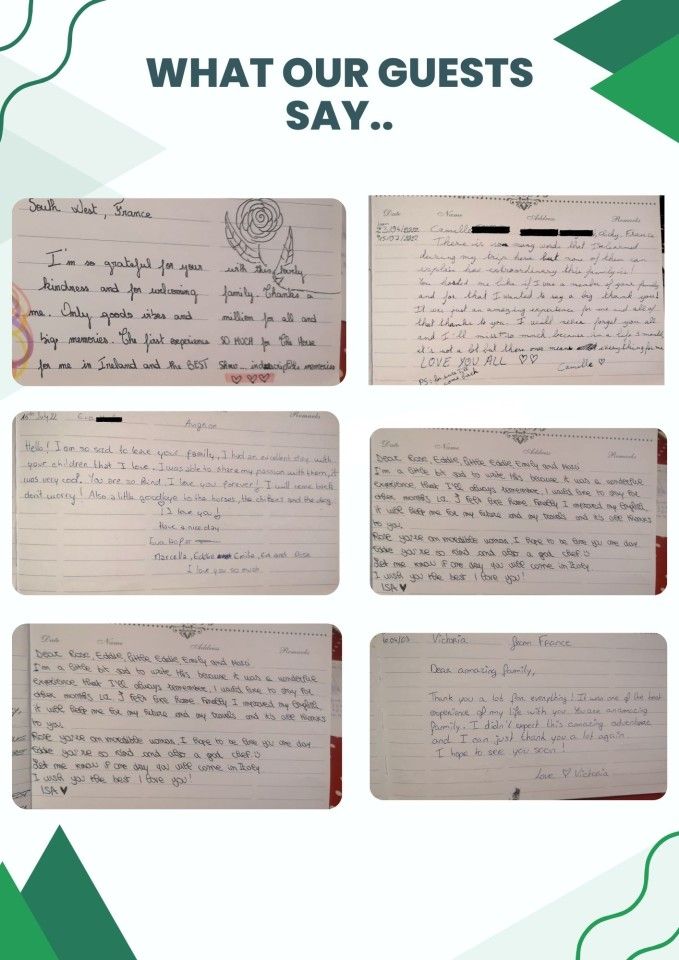 WHAT OUR GUESTS
SAY..
South West, France
I'm so grateful for your
kindness and for welcoming
me. Only goods vibes and
big memories. The first experience
for me in Ireland and the BEST
with this lovely
family. Thanks a
million for all and
SO MUCH for the Horse
Show... indescriptible memories
Date Name Address Remarks
Camille France
There is no many words that I'm learned
during my trip here but now of them can
explain how extraordinary this family is!
You hosted me like if I was a member of your family
and for that I wanted to say a big thank you!
It was just an amazing experience for me and all of
that thanks to you. I will never forget you all
and I'll miss so much because in a life 3 months
it's not a lot but there one mean everything for me
LOVE YOU ALL ♡♡
Camille
PS: I'm sure I'll
come back
15th July 22 Eva Remarks
Avignon
Hello! I am so sad to leave your family, I had an excellent stay with
your children that I love. I was able to share my passion with them, it
was very cool. You are so kind. I love you forever! I will come back
don't worry! Also a little goodbye to the horses, the chickens and the dog
! I love you!
Have a nice day
Eva
Marcella, Eddie Emilie, and Rose
I love you so much
Date Name Address Remarks
Dear Rose, Eddie, little Eddie, Emily and Massi
I'm a little bit sad to write this because it was a wonderful
experience that I'll always remember. I would like to stay for
other months. I felt like home. Finally I improved my English,
it will help me for my future and my travels and it's all thanks
to you.
Rose you're an incredible woman, I hope to be like you one day.
Eddie you're so kind and also a god chef.
Let me know if one day you will come in Italy
I wish you the best I love you!
ISA ♥
Date Name Address Remarks
Dear Rose, Eddie, little Eddie, Emily and Massi
I'm a little bit sad to write this because it was a wonderful
experience that I'll always remember. I would like to stay for
other months. I felt like home. Finally I improved my English,
it will help me for my future and my travels and it's all thanks
to you.
Rose you're an incredible woman, I hope to be like you one day.
Eddie you're so kind and also a god chef.
Let me know if one day you will come in Italy
I wish you the best I love you!
ISA ♥
Victoria from France
Dear amazing family,
Thank you a lot for everything! It was one of the best
experience of my life with you. You are an amazing
family. I didn't expect this amazing adventure
and I can just thank you a lot again.
I hope to see you soon!
Love ♡ Victoria